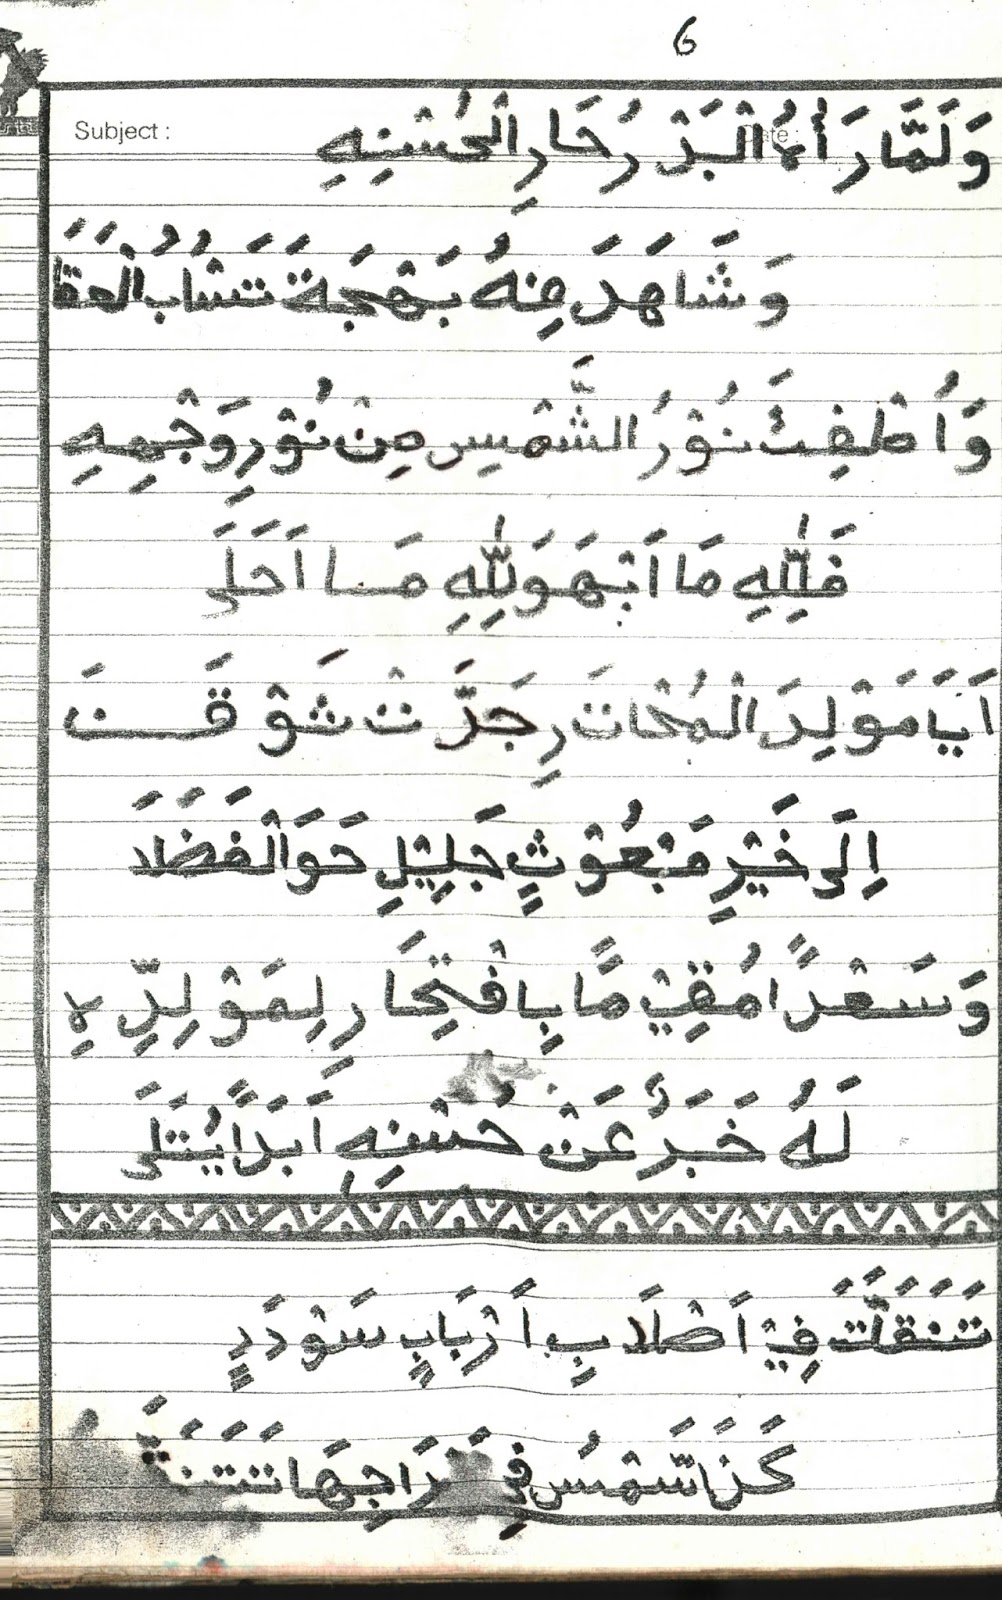 6
Subject :
وَلَمَّا رَأَهُ الْبَدْرُ حَارِ الْحُسْنِهِ
وَشَاهَدَ مِنْهُ بَهْجَةً تَسْلُبُ الْعَقَلَ
وَاُطْفِئَتْ نُوْرُ الشَّمْسِ مِنْ نُوْرِ وَجْهِهِ
فَلِلّٰهِ مَا اَبْهَ وَلِلّٰهِ مَا اَحَلَى
اَيَا مَوْلِدَ الْمُخْتَارِ جَدَّتْ شَوْقَنَ
اِلَى خَيْرِ مَبْعُوْثٍ جَلِيْلِ حَوَ الْفَضَلَ
وَسَعْدًا مُقِيْمًا بِافْتِخَارِ لِمَوْلِدِّهِ
لَهُ خَبَرٌ عَنْ حُسْنِهِ اَبَدًا يُتَلَى
تَنَقَلَّتَ فِيْ اَصْلَابِ اَرْبَابِ سَوْدَدٍ
كَذَا شَّمْسُ فِي